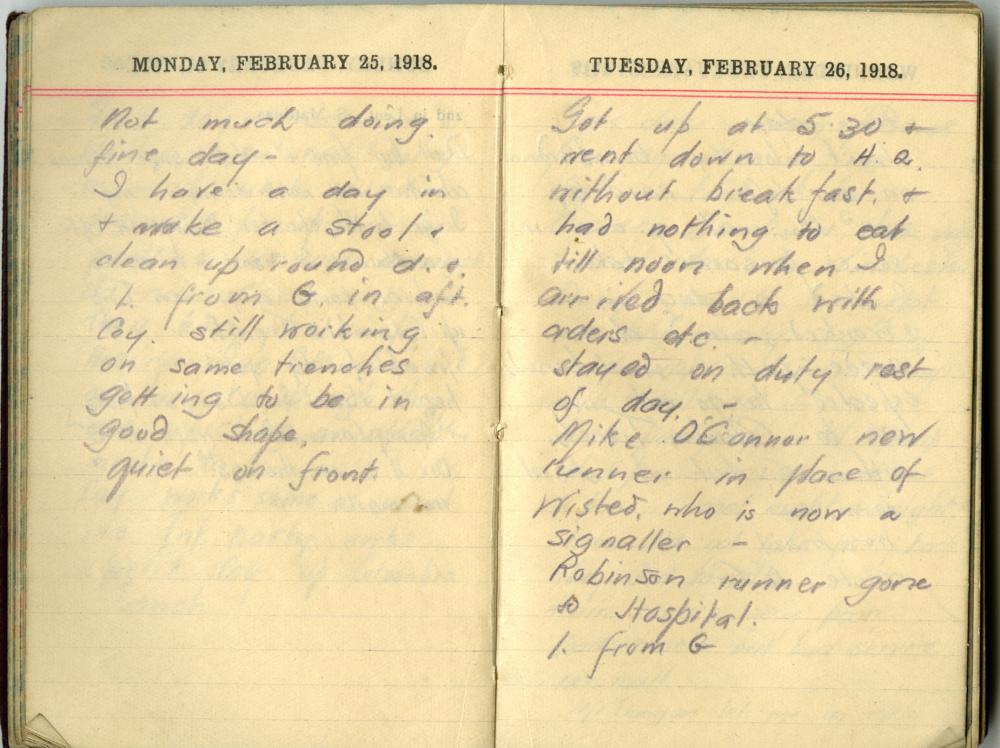 MONDAY, FEBRUARY 25, 1918.
Not much doing
fine day -
I have a day in
+ make a stool +
clean up round d. o.
1. from G in aft.
Coy. still working
on same trenches
getting to be in
good shape,
quiet on front.
TUESDAY, FEBRUARY 26, 1918.
Got up at 5.30 +
went down to H.Q.
without breakfast. +
had nothing to eat
till noon when I
arrived back with
orders etc -
stayed on duty rest
of day. -
Mike O'Connor new
runner in place of
Wisted, who is now a
signaller -
Robinson runner gone
to Hospital.
1. from G